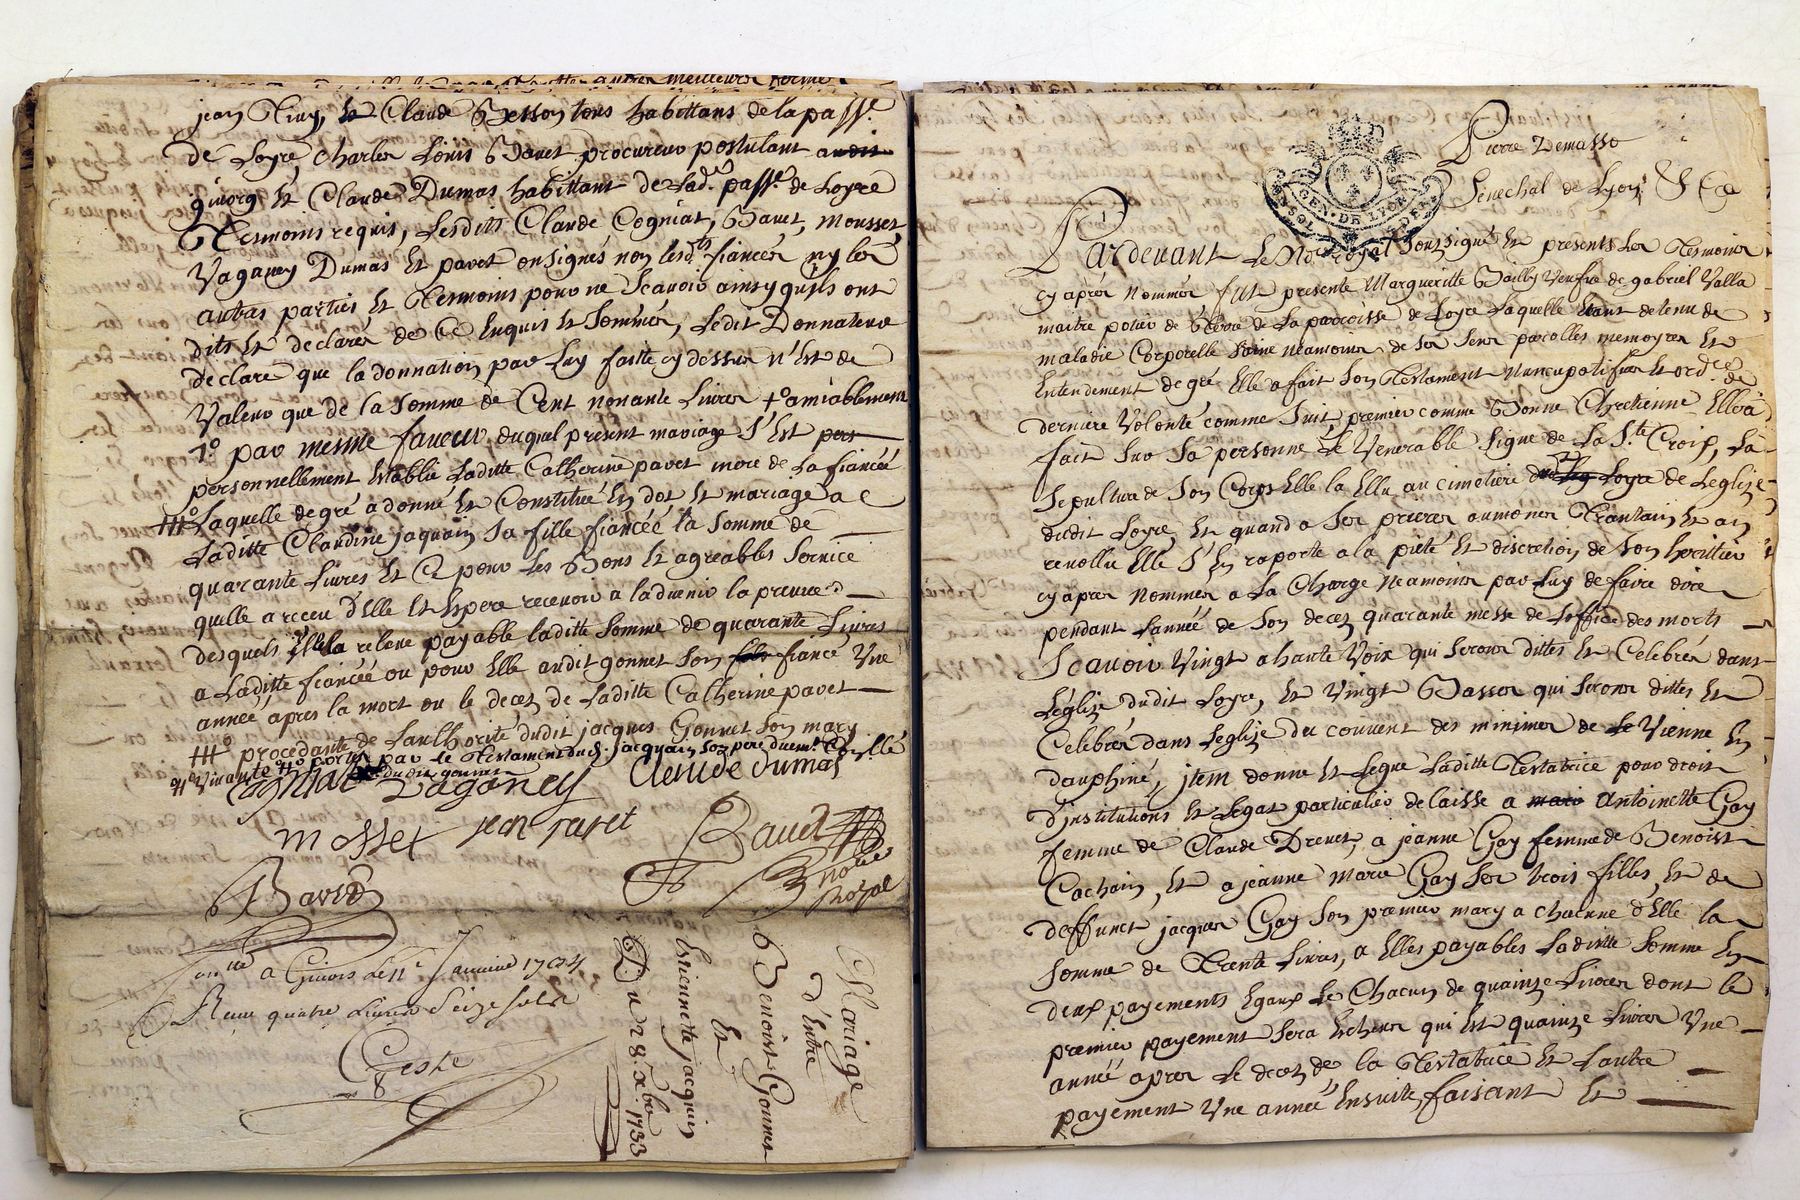 jean Tivy, et Claude Besson tous habittans de la passe.
de Loyre, Charles Louis Bavet procureur postulant audit
givors et Claude Dumas habittant de lad. passe. de Loyre
Tesmoins requis, Lesdits Claude Cogniat, Bavet, mousset,
Vaganey Dumas et pavet onsignés non lesdts. fiancés ny les
autres parties et Tesmoins pour ne Scavoir ainsy quils ont
dits et declarés de Ce Enquis et Sommés, Ledit Donnateur
declare que la donnation par Luy faitte cy dessus n'Est de
Valeur que de la Somme de Cent nonante Livres +o amiablement
1o par mesme faveur duquel present mariage S'Est pers
personnellement Establie Laditte Catherine pavet mere de La fiancéé
Laquelle de gré a donné et Constitué En dot et mariage a
Laditte Claudine jaquain Sa fille fiancéé la Somme de
quarante Livres et Ce pour Les Bons et agreables Service
quelle a receu d'Elle et Espere recevoir a ladvenir la preuve d
desquels Elle la releve payable laditte Somme de quarante Livres
a Laditte fiancéé ou pour Elle audit gonnet Son fiancé Une
année apres la mort ou le decez de Laditte Catherine pavet
procedante de Lauthorité dudit jacques Gonnet Son mary
portés par le Testament dud. jacquain Son pere
dudit gonnet
Cogniat Vaganey Claude dumas
mosset jean pavet Bavet
Bavet
no.re
Royal
Con.llé a Givors Le 11e Janvier 1734
Receu quatre Livres Seize Sols
Geste
Mariage
d'Entre
Benoist Gonnet
Et
Estiennette jacquin
Du 28 xbre 1733
Pierre Demasso
Senechal de Lyon &Ca
GEN. DE LYON
Pardevant Le No.re royal Soussigné et presents Les Tesmoins
cy aprés Nommés fut presente Margueritte Bailly Veufve de gabriel Valla
maitre potier de Terre de La parroisse de Loyre Laquelle Etant detenu de
maladie Corporelle Saine neamoins de Ses Sens parolles memoyres et
Entendement de gré Elle a fait Son Testament Nuncupatif et ord.ce de
derniere Volonté comme Suit, premier comme Bonne Chretienne Elle a
fait Sur Sa personne Le Venerable Signe de La S.te Croix, La
Sepulture de Son Corps Elle la Ellu au cimetiere de Leglise
dudit Loyre et quand a Ses prieres aumones Trantain et an
revollu Elle S'En raporte a la pieté et discretion de Son heritier
cy apres Nommer a La Charge Neamoins par Luy de faire dire
pendant Lannéé de Son decez quarante messe de Loffice des morts
Scavoir Vingt a haute Voix qui Seront dittes et Celebrés dans
Léglize dudit Loyre, et Vingt Basses qui Seront dittes et
Celebrés dans Leglize du couvent des minimes de Vienne En
dauphiné, jtem donne et Legue Laditte Testatrice pour droit
d'institutions et Legat particulier delaisse a Antoinette Gay
femme de Claude Drevet, a jeanne Gay femme de Benoist
Cachain, et a jeanne marie Gay Ses trois filles, et de
deffunct jacques Gay Son premier mary a chacune d'Elle la
Somme de Trente Livres, a Elles payables Laditte Somme En
deux payements Egaux Le Chacun de quainze Livres dont le
premier payement Sera Echeu qui Est quainze Livres Une
année apres Le decez de la Testatrice et Lautre
payement Une année Ensuite, faisant et